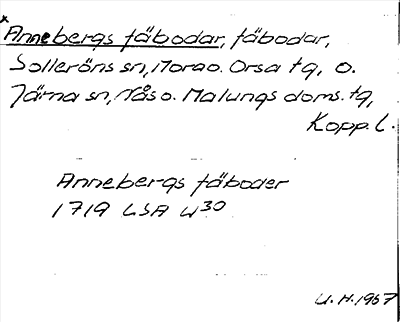 x
Annebergs fäbodar, fäbodar,
Solleröns sn, Mora o. Orsa tg, o.
Järna sn, Nås o. Malungs doms. tg,
Kopp. l.
Annebergs fäboder
1719 LSA U30
U.H. 1957